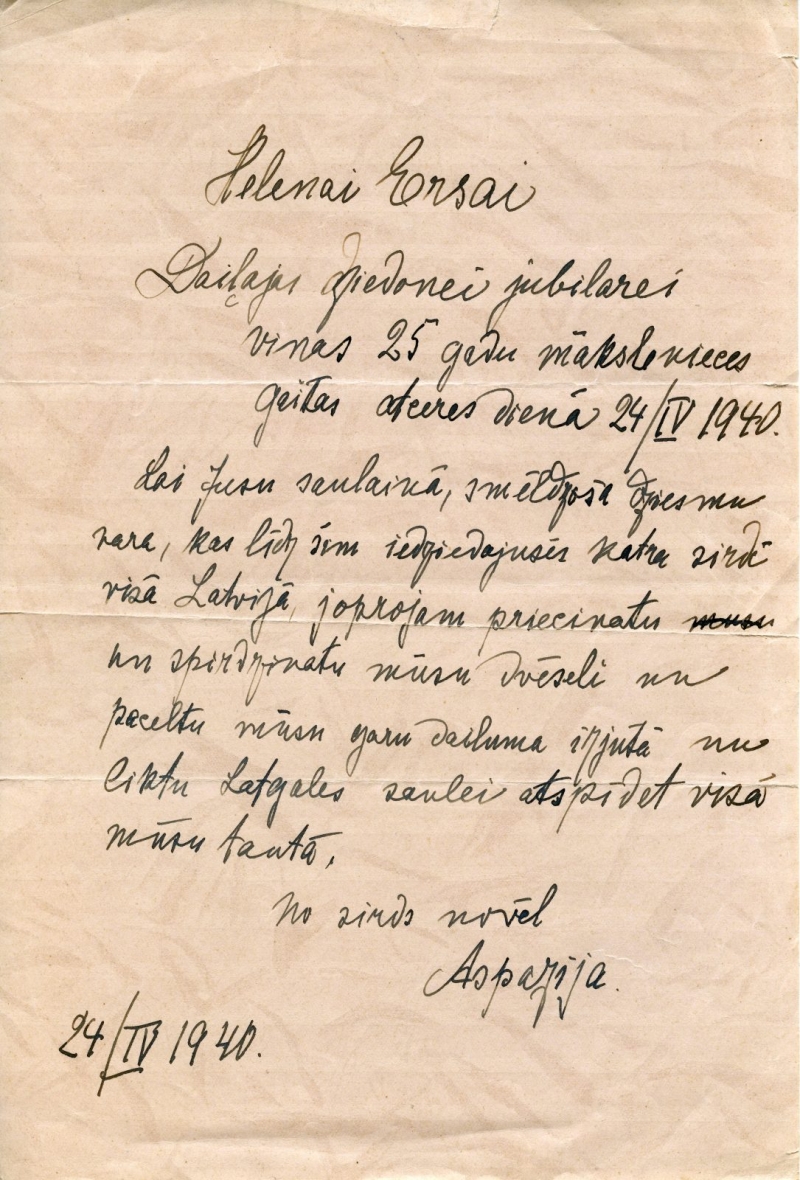 Helenai Ersai
Daiļajai dziedonei jubilarei
viņas 25 gadu mākslenieces
gaitas atceres dienā 24/IV 1940.
Lai Jusu saulainā, smeldzošā dziesmu
vara, kas līdz šim iedziedajusēs katra sirdī
visā Latvijā, joprojam priecinatu musu
un spirdzinatu mūsu dvēseli un
paceltu mūsu garu daiļuma izjutā un
liktu Latgales saulei atspīdet visā
mūsu tautā.
No sirds novēl
Aspazija.
24/IV 1940.